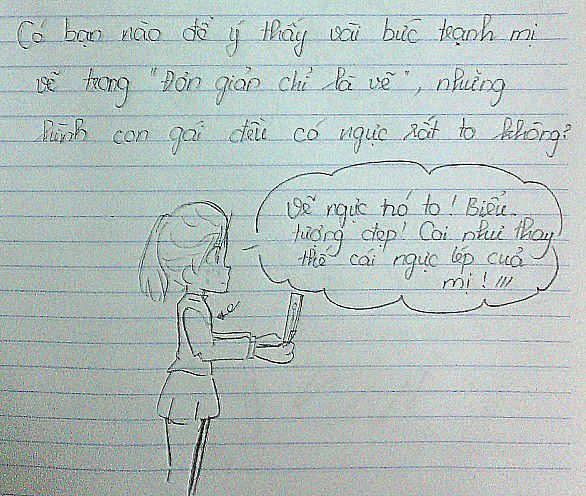 Có bạn nào để ý thấy vài bức tranh mị
vẽ trong "Đơn giản chỉ là vẽ", những
hình con gái đều có ngực rất to không?
Vẽ ngực nó to! Biểu
tượng đẹp! Coi như thay
thế cái ngực lép cuả
mị! !!!